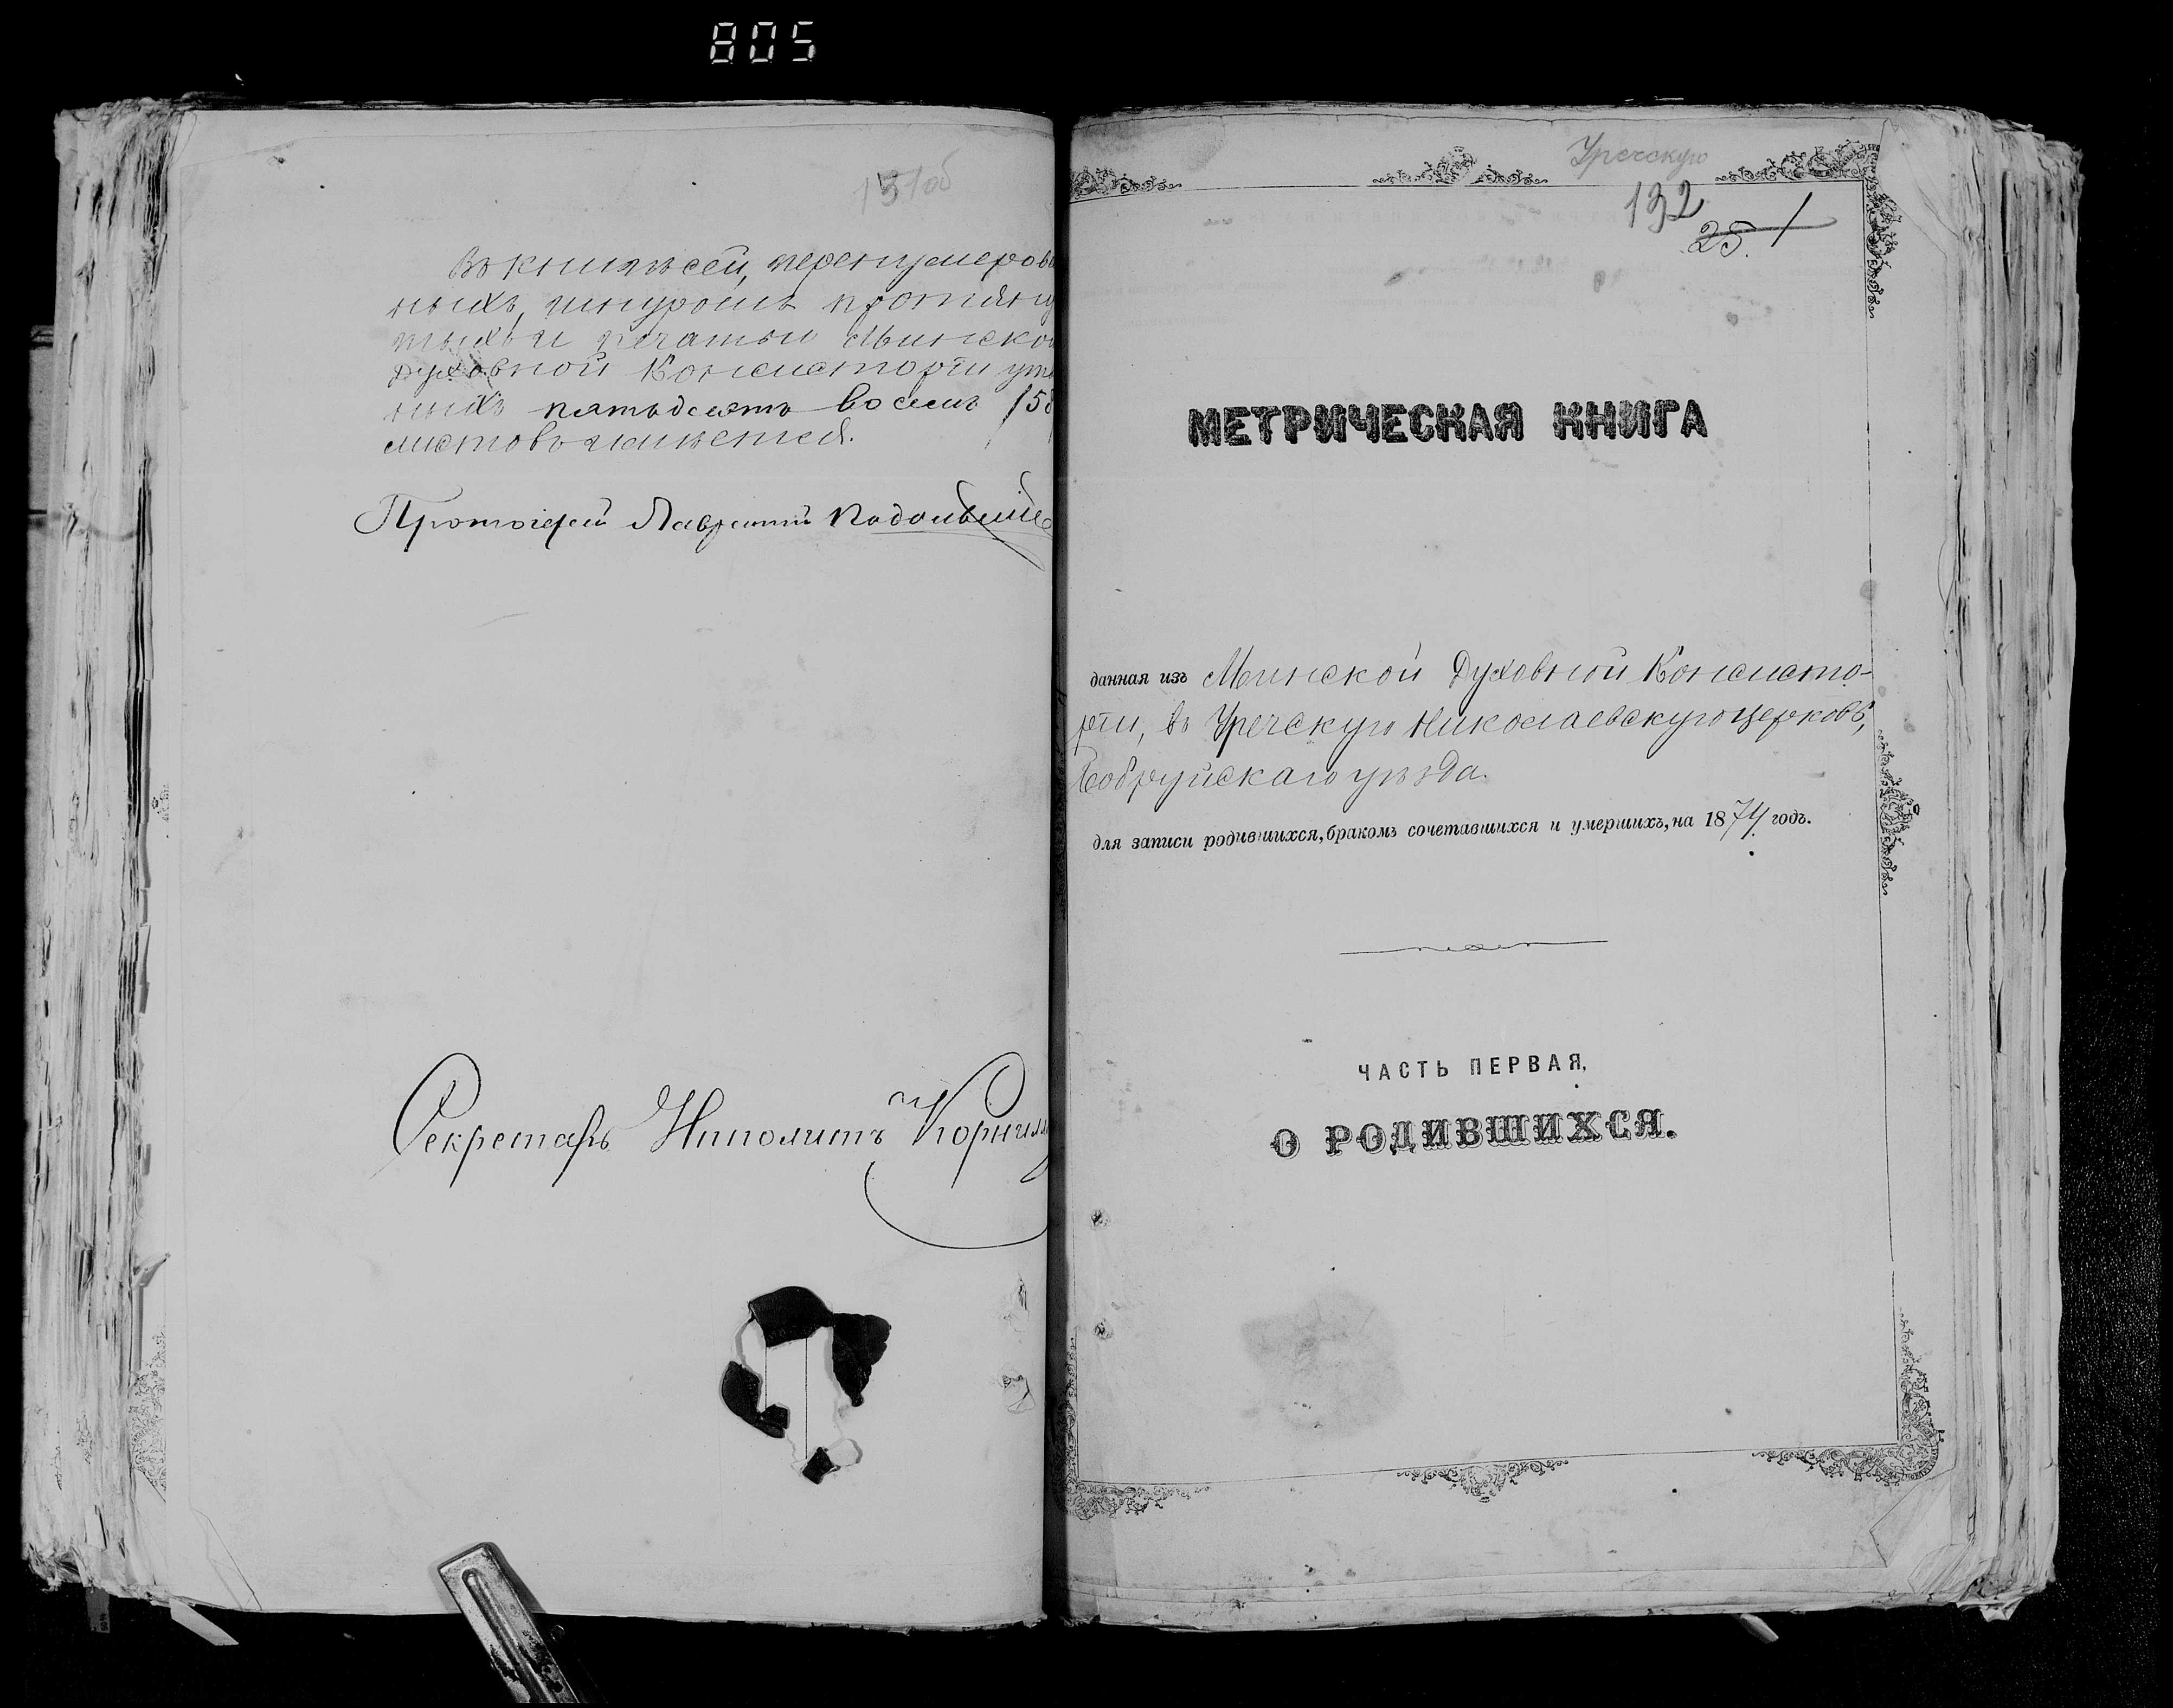 805
131об
Въ книгѣ сей, перенумеров
ныхъ, шнуромъ протяну
тыхъ и печатью Минской
Духовной Консисторіи утв
ныхъ пятьдесятъ восемь /58
листовъ имѣется.
Протоіерей Лаврентій
Секретарь Иполитъ
Уречскую
132
25. 1
МЕТРИЧЕСКАЯ КНИГА
данная изъ Минской Духовной Консисто-
ріи, въ Уречскую Николаевскую церковь,
Бобруйскаго уѣзда.
для записи родившихся, бракомъ сочетавшихся и умершихъ, на 1874 годъ.
ЧАСТЬ ПЕРВАЯ,
О РОДИВШИХСЯ.